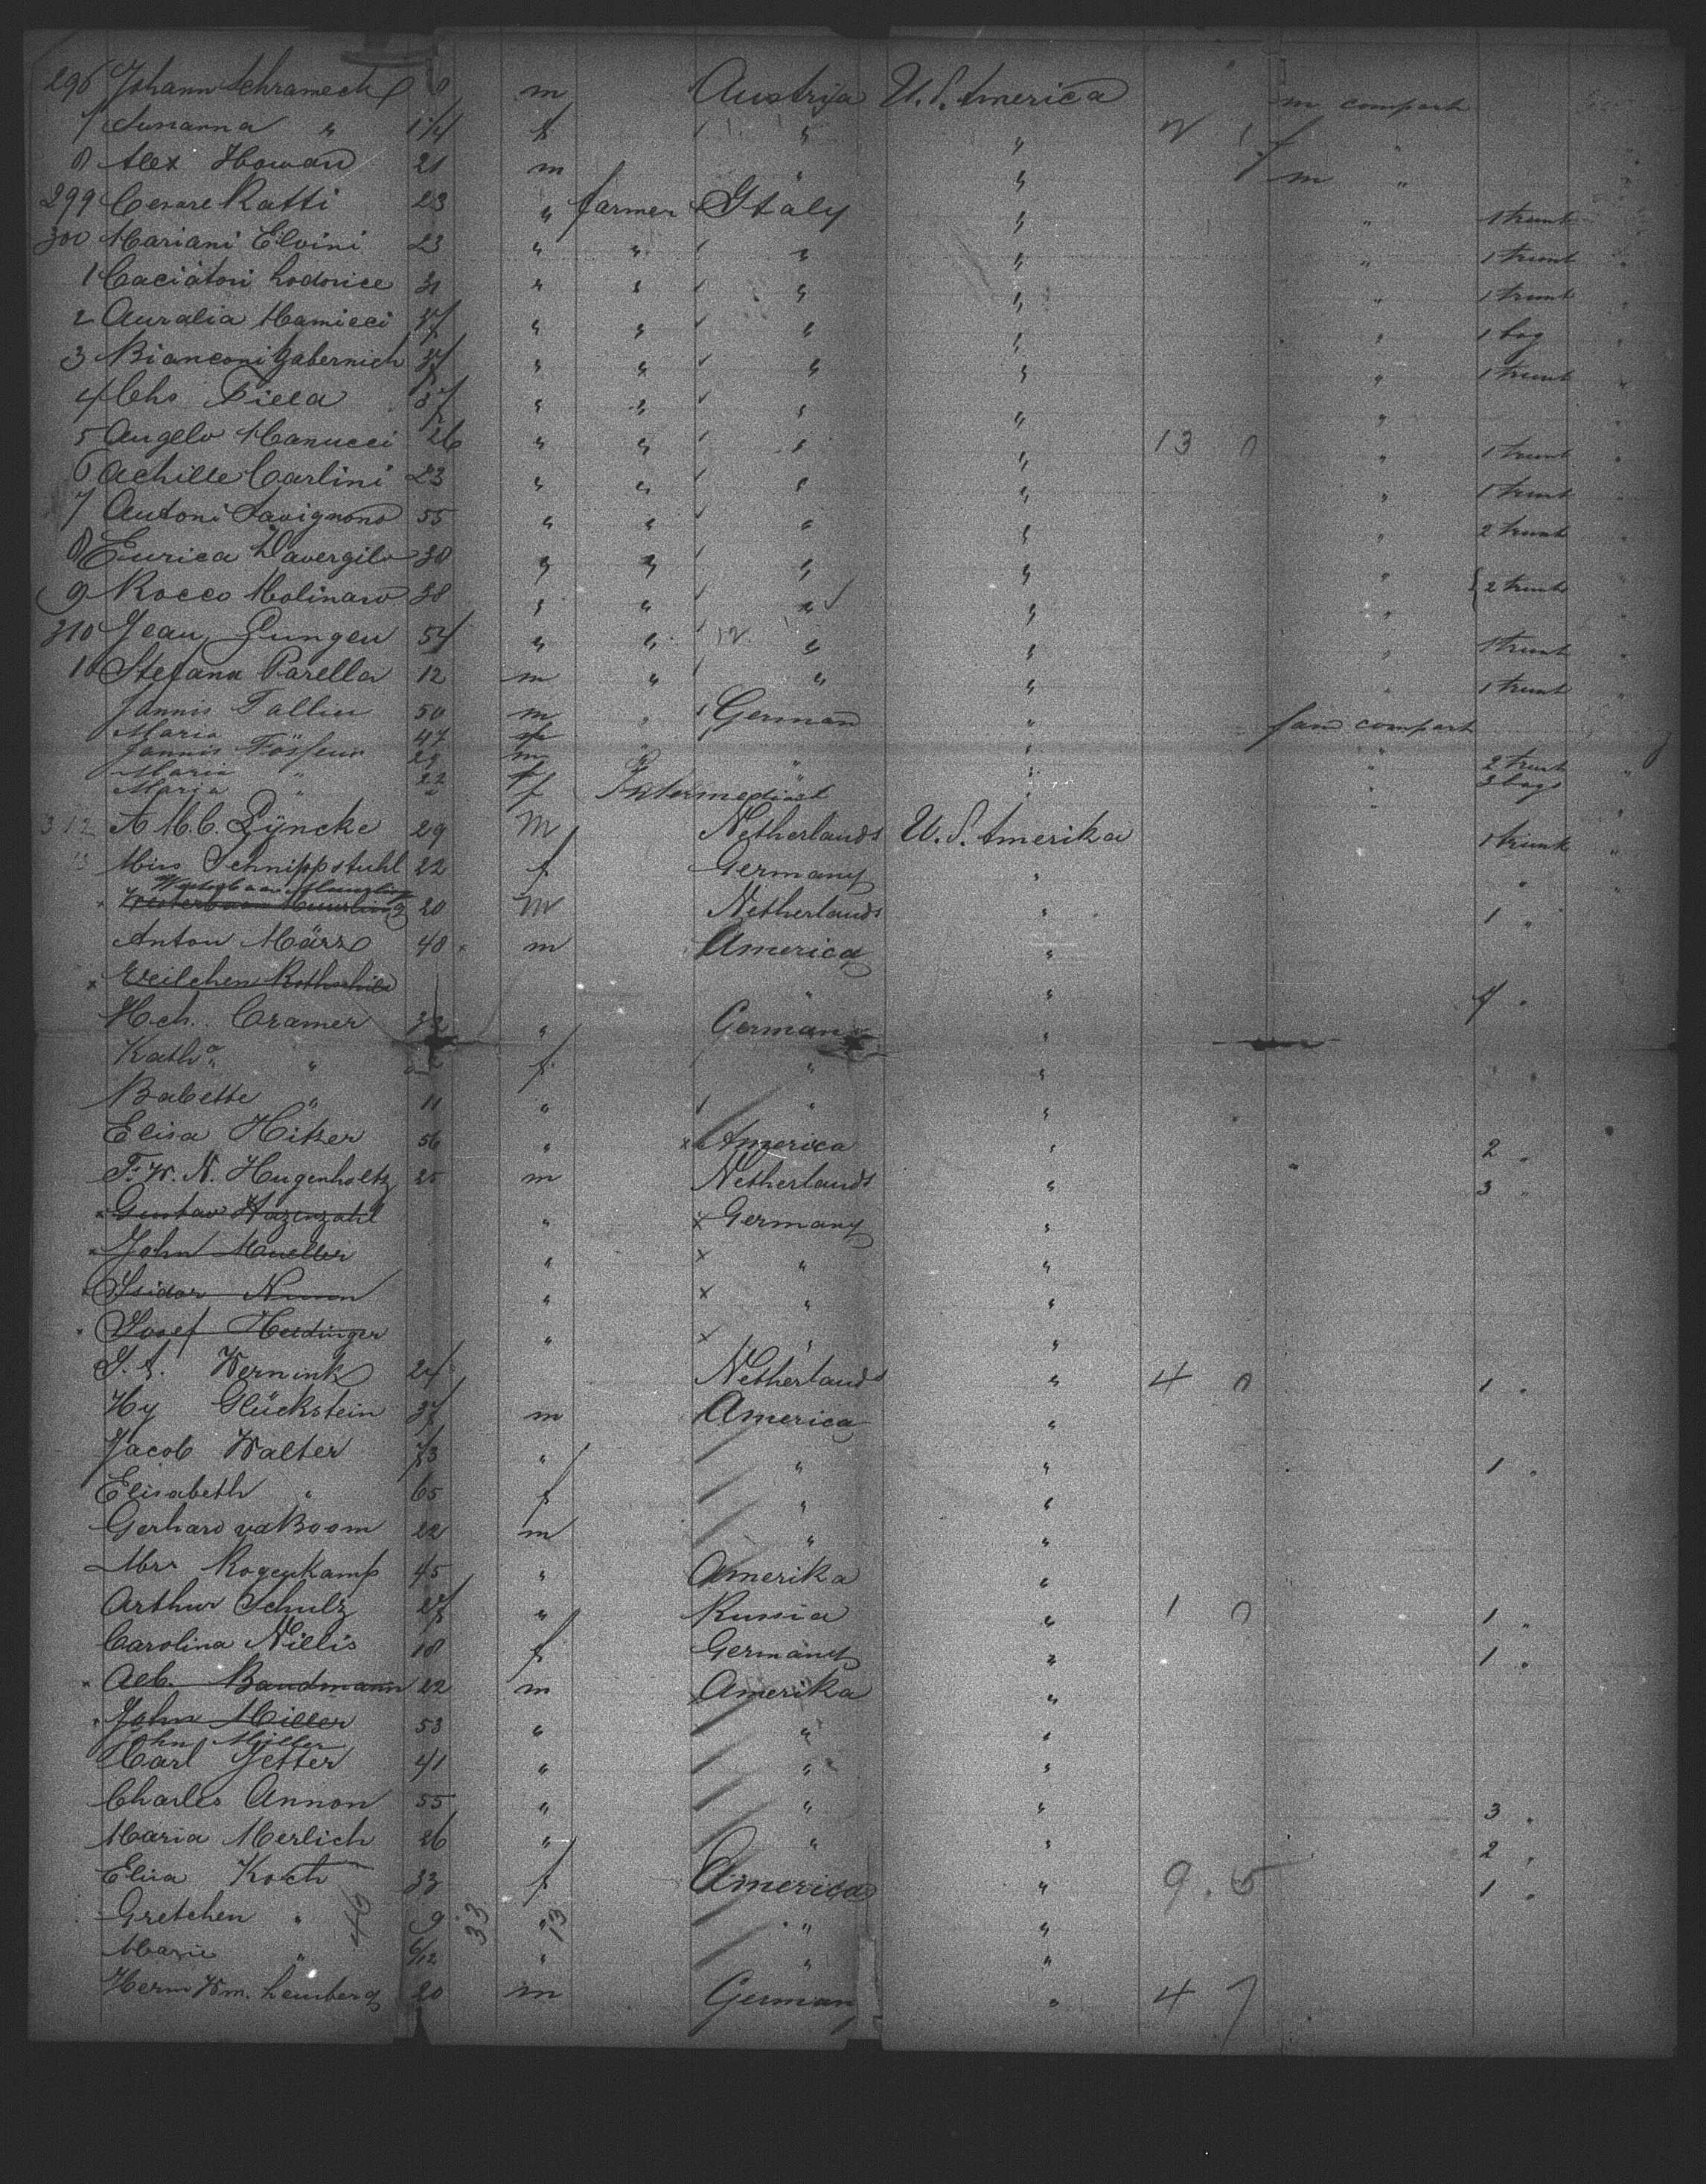 296 Johann Schrameck 8 m Austrija U. S. America m compart
7 Susanna " 1 1/4 f " " f "
8 Alex Howan 21 m " " m "
299 Cesare Ratti 23 " farmer Italy " " 1 trunk
300 Mariani Elvini 23 " " " " " 1 trunk
1 Caciatori Lodovice 31 " " " " " 1 trunk
2 Auralia Mamicci 37 " " " " " 1 bag
3 Bianconi Gabernich 37 " " " " " 1 trunk
4 Chs Pieca 37 " " " " "
5 Angelo Manucci 26 " " " " 13 0 " 1 trunk
6 Achille Carlini 23 " " " " " 1 trunk
7 Antoni Savignono 55 " " " " " 2 trunk
8 Eurica Davergilo 38 " " " " "
9 Rocco Molinaro 38 " " " " " 2 trunks
310 Jean Gungen 54 " " " " " 1 trunk
10 Stefana Parella 12 m " " " " 1 trunk
Jannis Tallen 50 m " German " fam compart
Maria " 47 f " " "
Jannis Fosseur 29 m " " " " 2 trunk
Maria " 22 f " " 3 bags
Marja " f Intermediat " "
312 A M. C. Lyncke 29 M Netherlands U. S. Amerika 1 trunk
13 Miss Schnippstuhl 22 f Germany " "
20 M Netherlands " 1 "
Anton März 48 m America "
Veilchen Rothschild " " 4 "
Hch. Cramer 32 " German "
Katha " f " "
Babette " 11 " " "
Elisa Hitzer 56 " America " 2 "
F. W. N. Hugenholtz 25 m Netherlands " " 3 "
Gustav Hazenzahl " Germany "
John Mueller " " "
Isidor Numm " " "
Josef Heidinger " " "
J. S. Wernink 24 Netherlands " 4 0 1 "
Hy Glückstein 37 m America "
Jacob Walter 73 " " " 1 "
Elisabeth " 65 f " "
Gerhard vd Boom 22 m " "
Mrs Rogenkamp 45 " Amerika "
Arthur Schulz 27 " Russia " 1 0 1 "
Carolina Nillis 18 f Germany " 1 "
Aeb. Bandmann 22 m Amerika "
John Miller 53 " " "
John Miller
Carl Jetter 41 " " "
Charles Annon 55 " " " 3 "
Maria Merlich 26 " " " 2 "
Elisa Koch 33 f America " 9. 5 1 "
Gretchen " 9 " " "
Marie " 6/12 " " "
Herm Wm. Lemberg 20 m German " 4 7
46 33 13